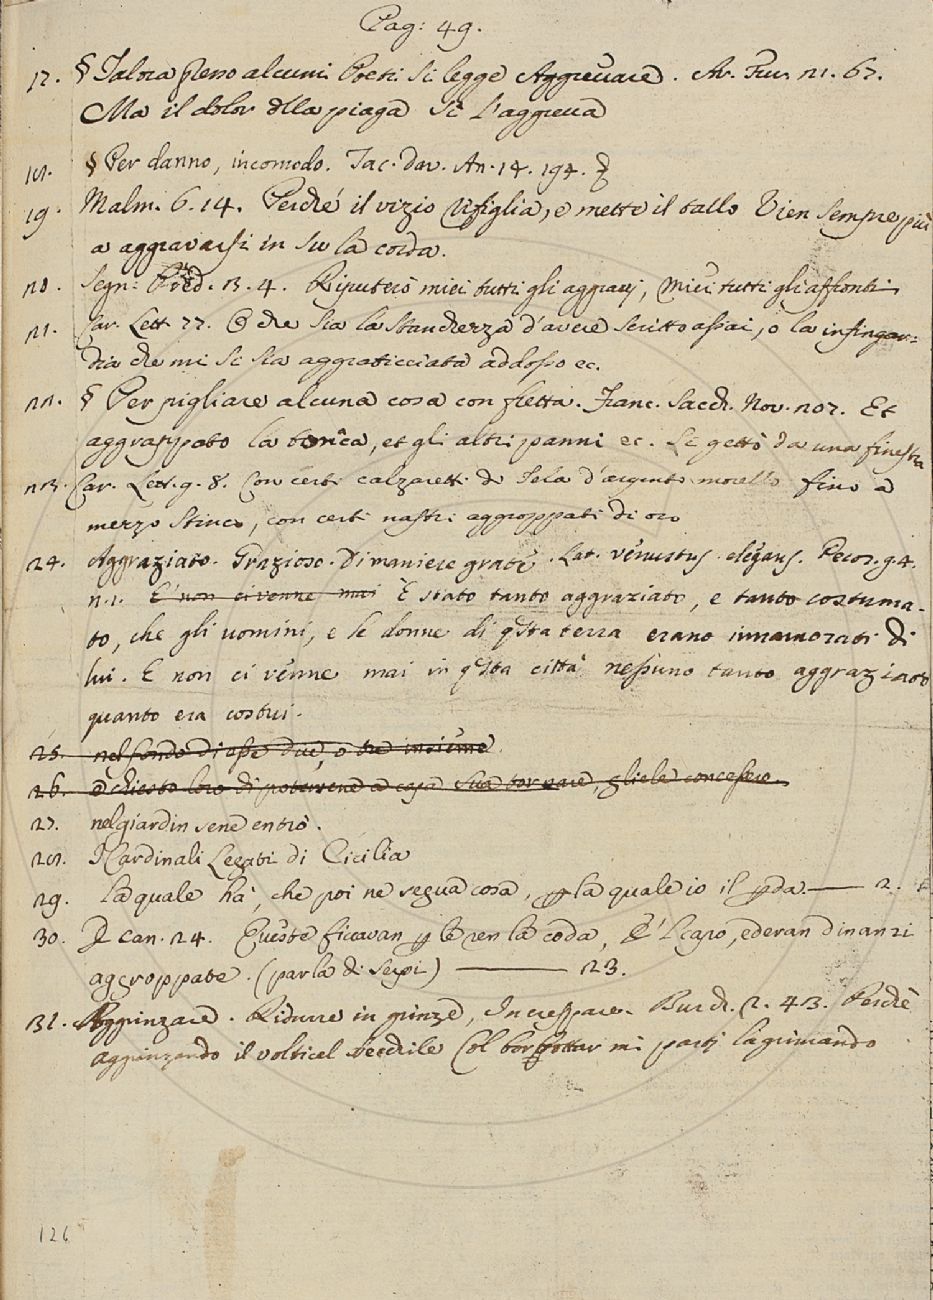 Pag: 49.
17. § Talora presso alcuni Poeti si legge Aggrevare. Ar. Fur. 21. 67.
Ma il dolor della piaga sì l'aggreva
18. § Per danno, incomodo. Tac. Dav. An. 14. 194.
19. Malm. 6. 14. Perché il vizio rifiglia, e mette il tallo Vien sempre più
a aggravarsi in su la corda.
20. Segn: Pred. 13. 4. Riputerò miei tutti gli aggravj, miei tutti gli affronti.
21. Car. Lett. 77. O che sia la stanchezza d'avere scritto assai, o la infingar=
dia che mi si sia aggraticciata addosso ec.
22. § Per pigliare alcuna cosa con fretta. Franc. Sacch. Nov. 207. Et
aggrappato la tonica, et gli altri panni ec. Si gettò da una finestra
23. Car. Lett. g. 8. Con certi calzaretti di Tela d'argento morello fino a
mezzo stinco, con certi nastri aggroppati di oro
24. Aggraziato. Grazioso. Di maniere grate. Lat. venustus. elegans. Pecor. g. 4.
n. 1. E' non ci venne mai È stato tanto aggraziato, e tanto costuma-
to, che gli uomini, e le donne di qsta terra erano innamorati di
lui. E non ci venne mai in qsta città nessuno tanto aggraziato
quanto era costui.
25. nel fondo di esse due, o tre insieme
26. e chiesto loro di potersene a casa sua tornare, gliele concessero.
27. nel giardin sene entrò.
28. I Cardinali Legati di Cicilia
29. la quale ha, che poi ne segua cosa, p la quale io il pda — 2.
30. D. can. 24. Queste ficcavan p le ren la coda, E'l capo, ed eran dinanzi
aggroppate. (parla di serpi) — 23.
31. Aggrinzare. Ridurre in grinze, Increspare. Burch. 2. 43. Perchè
aggrinzando il volticel Col borbottar mi parti lagrimando
126